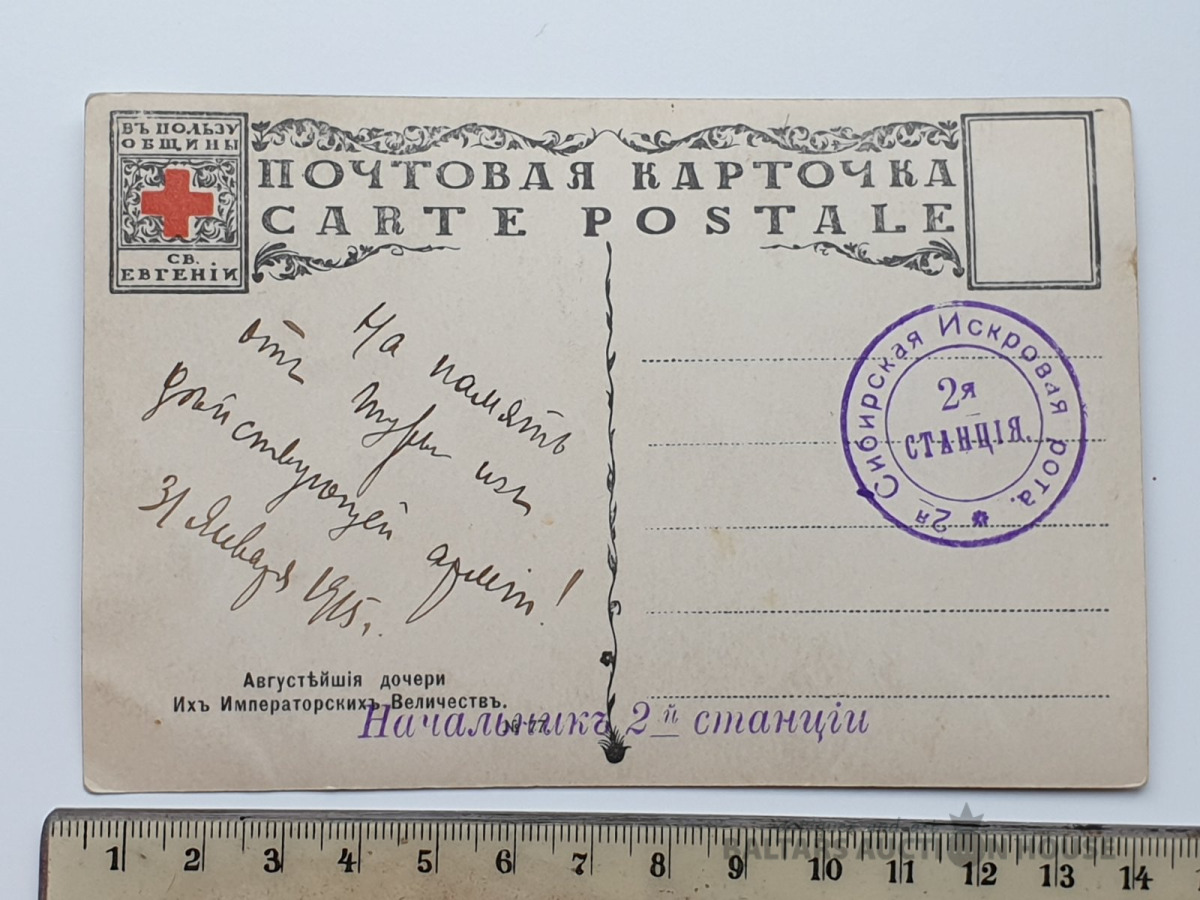 ВЪ ПОЛЬЗУ
ОБЩИНЫ
СВ.
ЕВГЕНІИ
ПОЧТОВАЯ КАРТОЧКА
CARTE POSTALE
На память
отъ Шуры изъ
дѣйствующей арміи!
31 Января 1915г.
2я Сибирская Искровая рота.
2я
СТАНЦІЯ.
Августѣйшія дочери
Ихъ Императорскихъ Величествъ.
№ 77.
Начальникъ 2й станціи
1 2 3 4 5 6 7 8 9 10 11 12 13 14
BALTASS AUCTION HOUSE